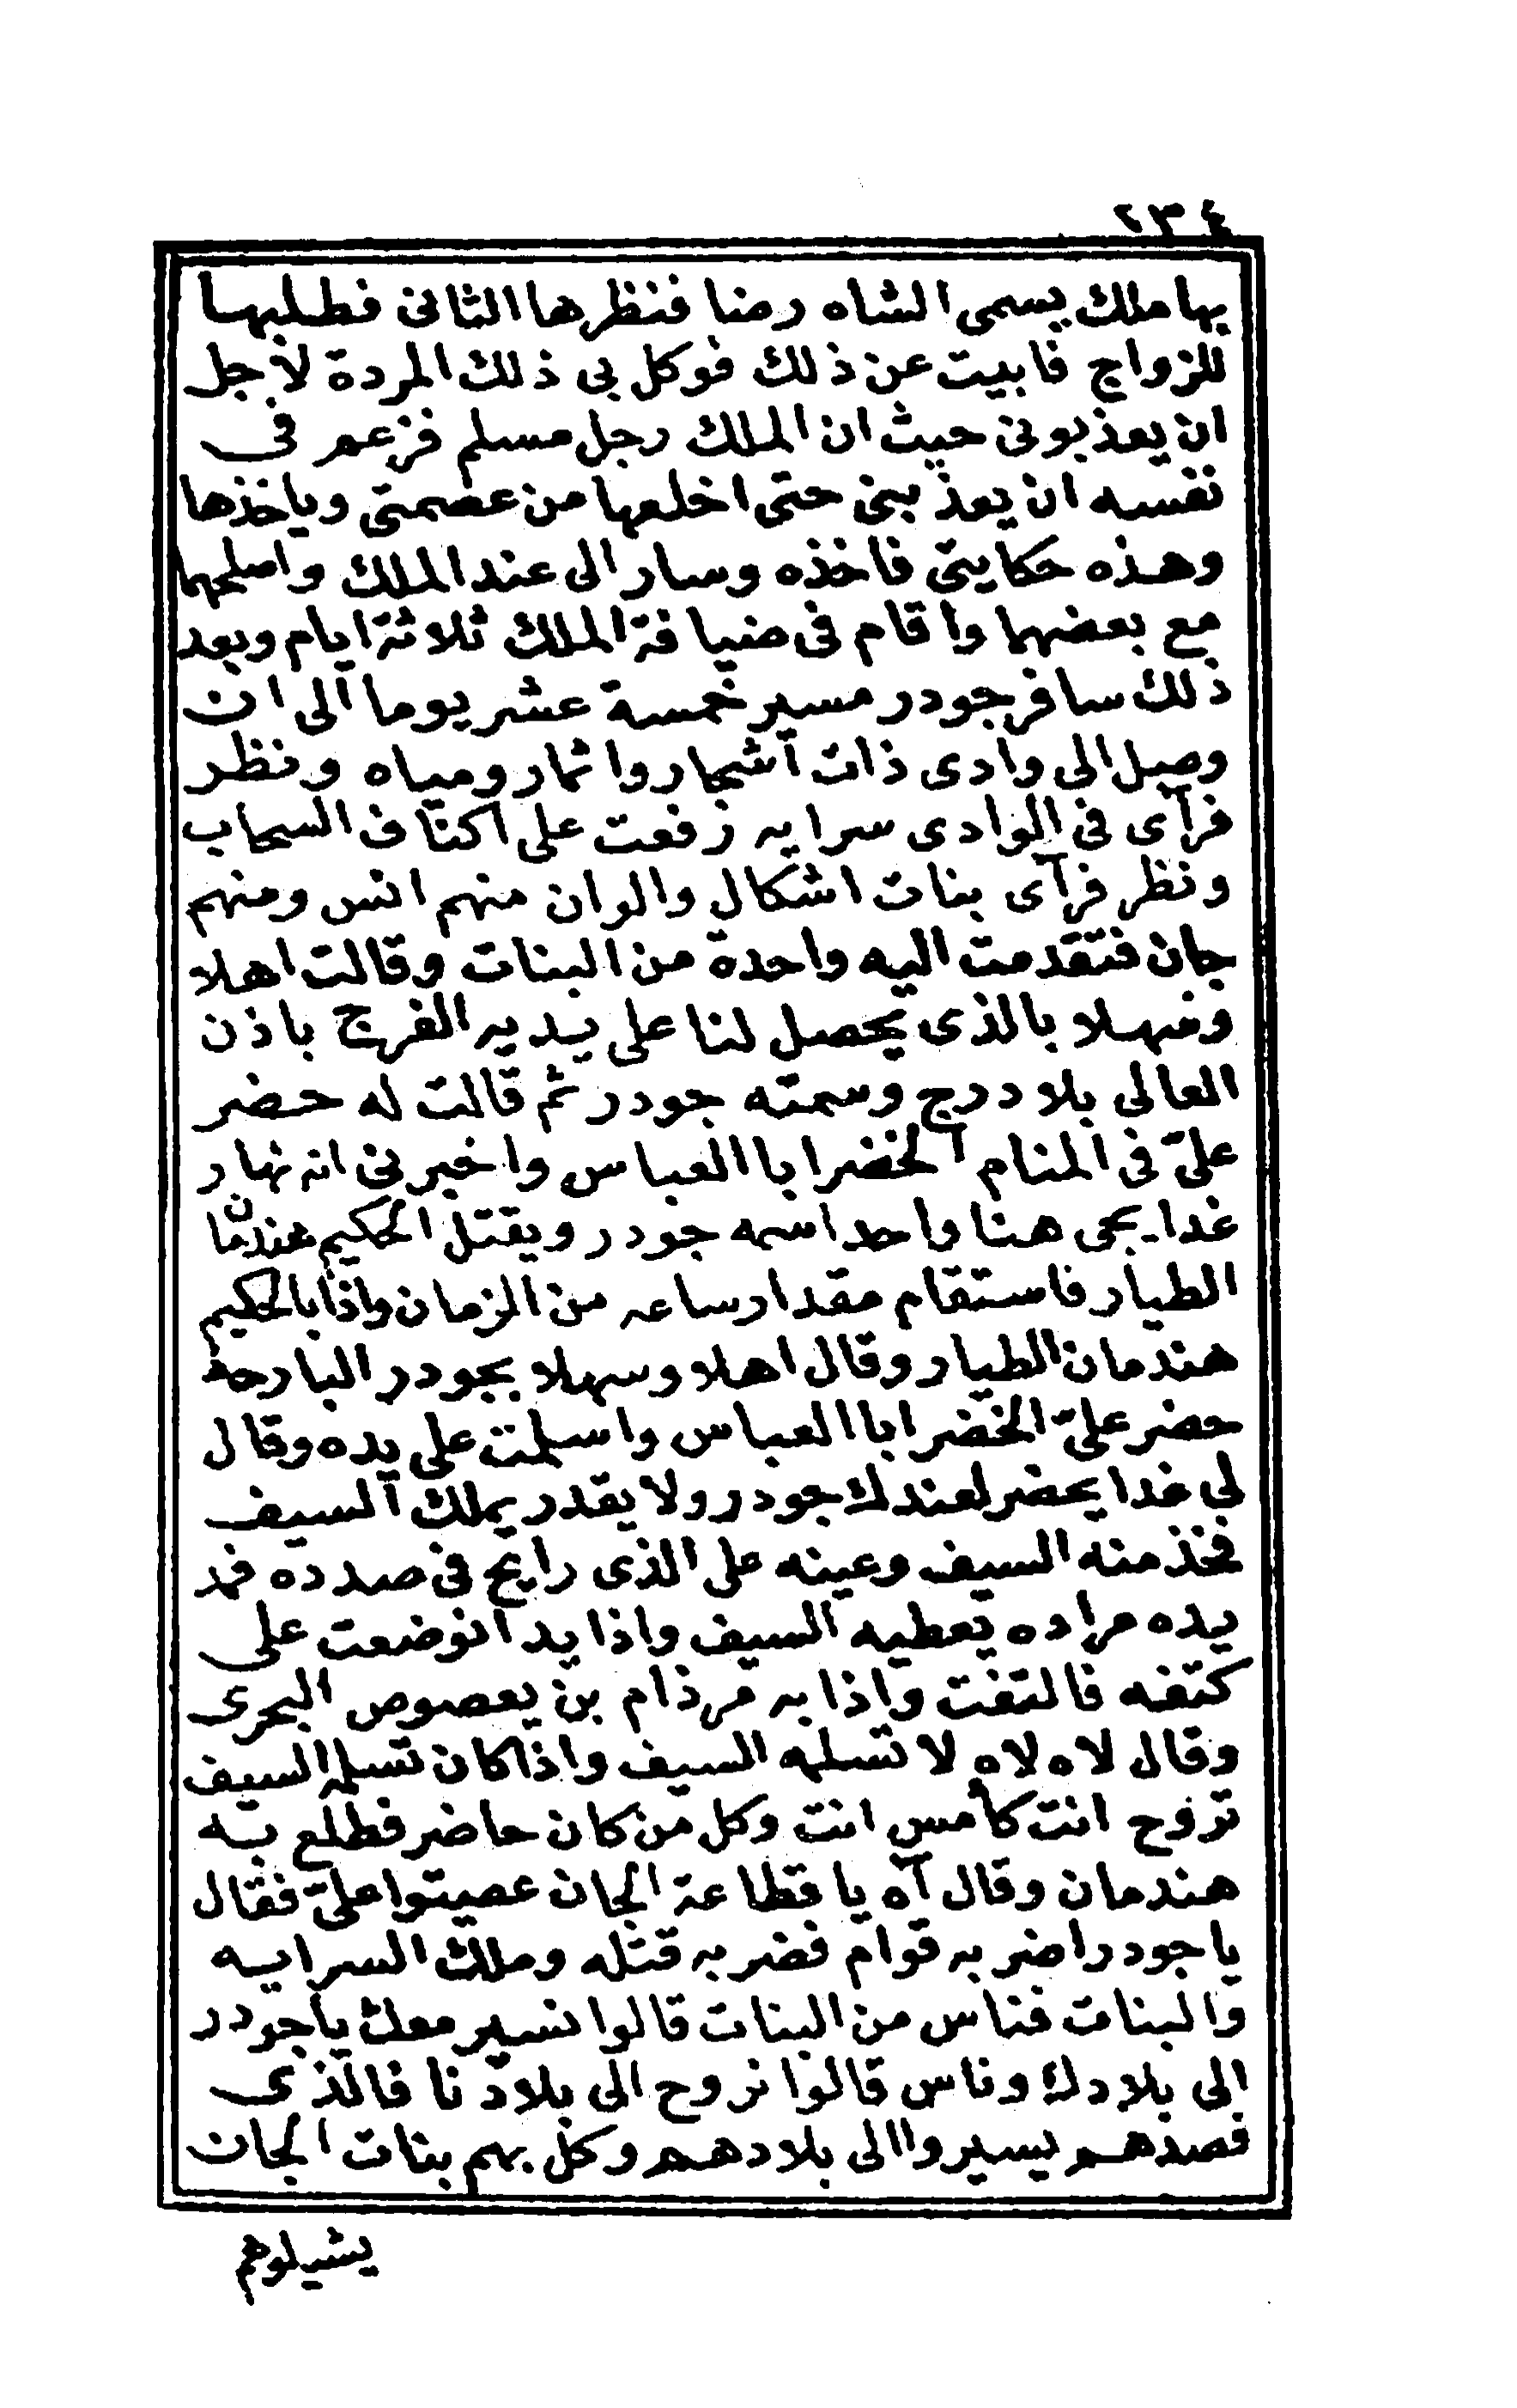 ٢٣٤
بها ملك يسمى الشاه رضا فنظرها الثانى فطلبها
للزواج فابيت عن ذلك فوكل بى ذلك المردة لأجل
ان يعذبونى حيث ان الملك رجل مسلم فزعم فى
نفسه ان يعذبنى حتى اخلعها من عصمتى وياخذها
وهذه حكايتى فاخذه وسار الى عند الملك واصلحهما
مع بعضهما واقام فى ضيافة الملك ثلاثة ايام وبعد
ذلك سافر جودر مسير خمسة عشر يوما الى ان
وصل الى وادى ذات اشجار واثمار ومياه ونظر
فرآى فى الوادى سرايه رفعت على اكتاف السحاب
ونظر فرآى بنات اشكال والوان منهم انس ومنهم
جان فتقدمت اليه واحدة من البنات وقالت اهلا
وسهلا بالذى يحصل لنا على يديه الفرج باذن
العالى بلا درج وسمته جودر ثم قالت له حضر
علىّ فى المنام الخضر ابا العباس واخبرنى انه نهار
غدا يجى هنا واحد اسمه جودر ويقتل الحكيم هندمان
الطيار فاستقام مقدار ساعه من الزمان واذا بالحكيم
هندمان الطيار وقال اهلا وسهلا بجودر البارحة
حضر علىّ الخضر ابا العباس واسلمت على يده وقال
لى غدا يحضر لعندك جودر ولا يقدر يملك السيف
فخذ منه السيف وعينه على الذى رايح فى صدده فمد
يده مراده يعطيه السيف واذا يد انوضعت على
كتفه فالتفت واذا به مرذام بن يعصوص البحرى
وقال لاه لاه لا تسلمه السيف واذا كان تسلمه السيف
تروح انت كأمس انت وكل من كان حاضر فطلع به
هندمان وقال آه يا قطاعة الجان عصيتوا علىّ فقال
ياجودر اضربه قوام فضربه قتله وملك السرايه
والبنات فناس من البنات قالوا نسير معك ياجودر
الى بلادك وناس قالوا نروح الى بلادنا فالذى
قصدهم يسيروا الى بلادهم وكل بهم بنات الجان
يشيلوهم